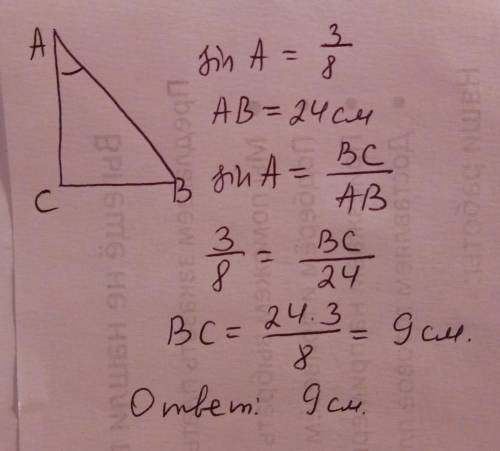 A
C
B
sin A = 3/8
AB = 24 см
sin A = BC/AB
3/8 = BC/24
BC = 24·3/8 = 9 см.
Ответ: 9 см.